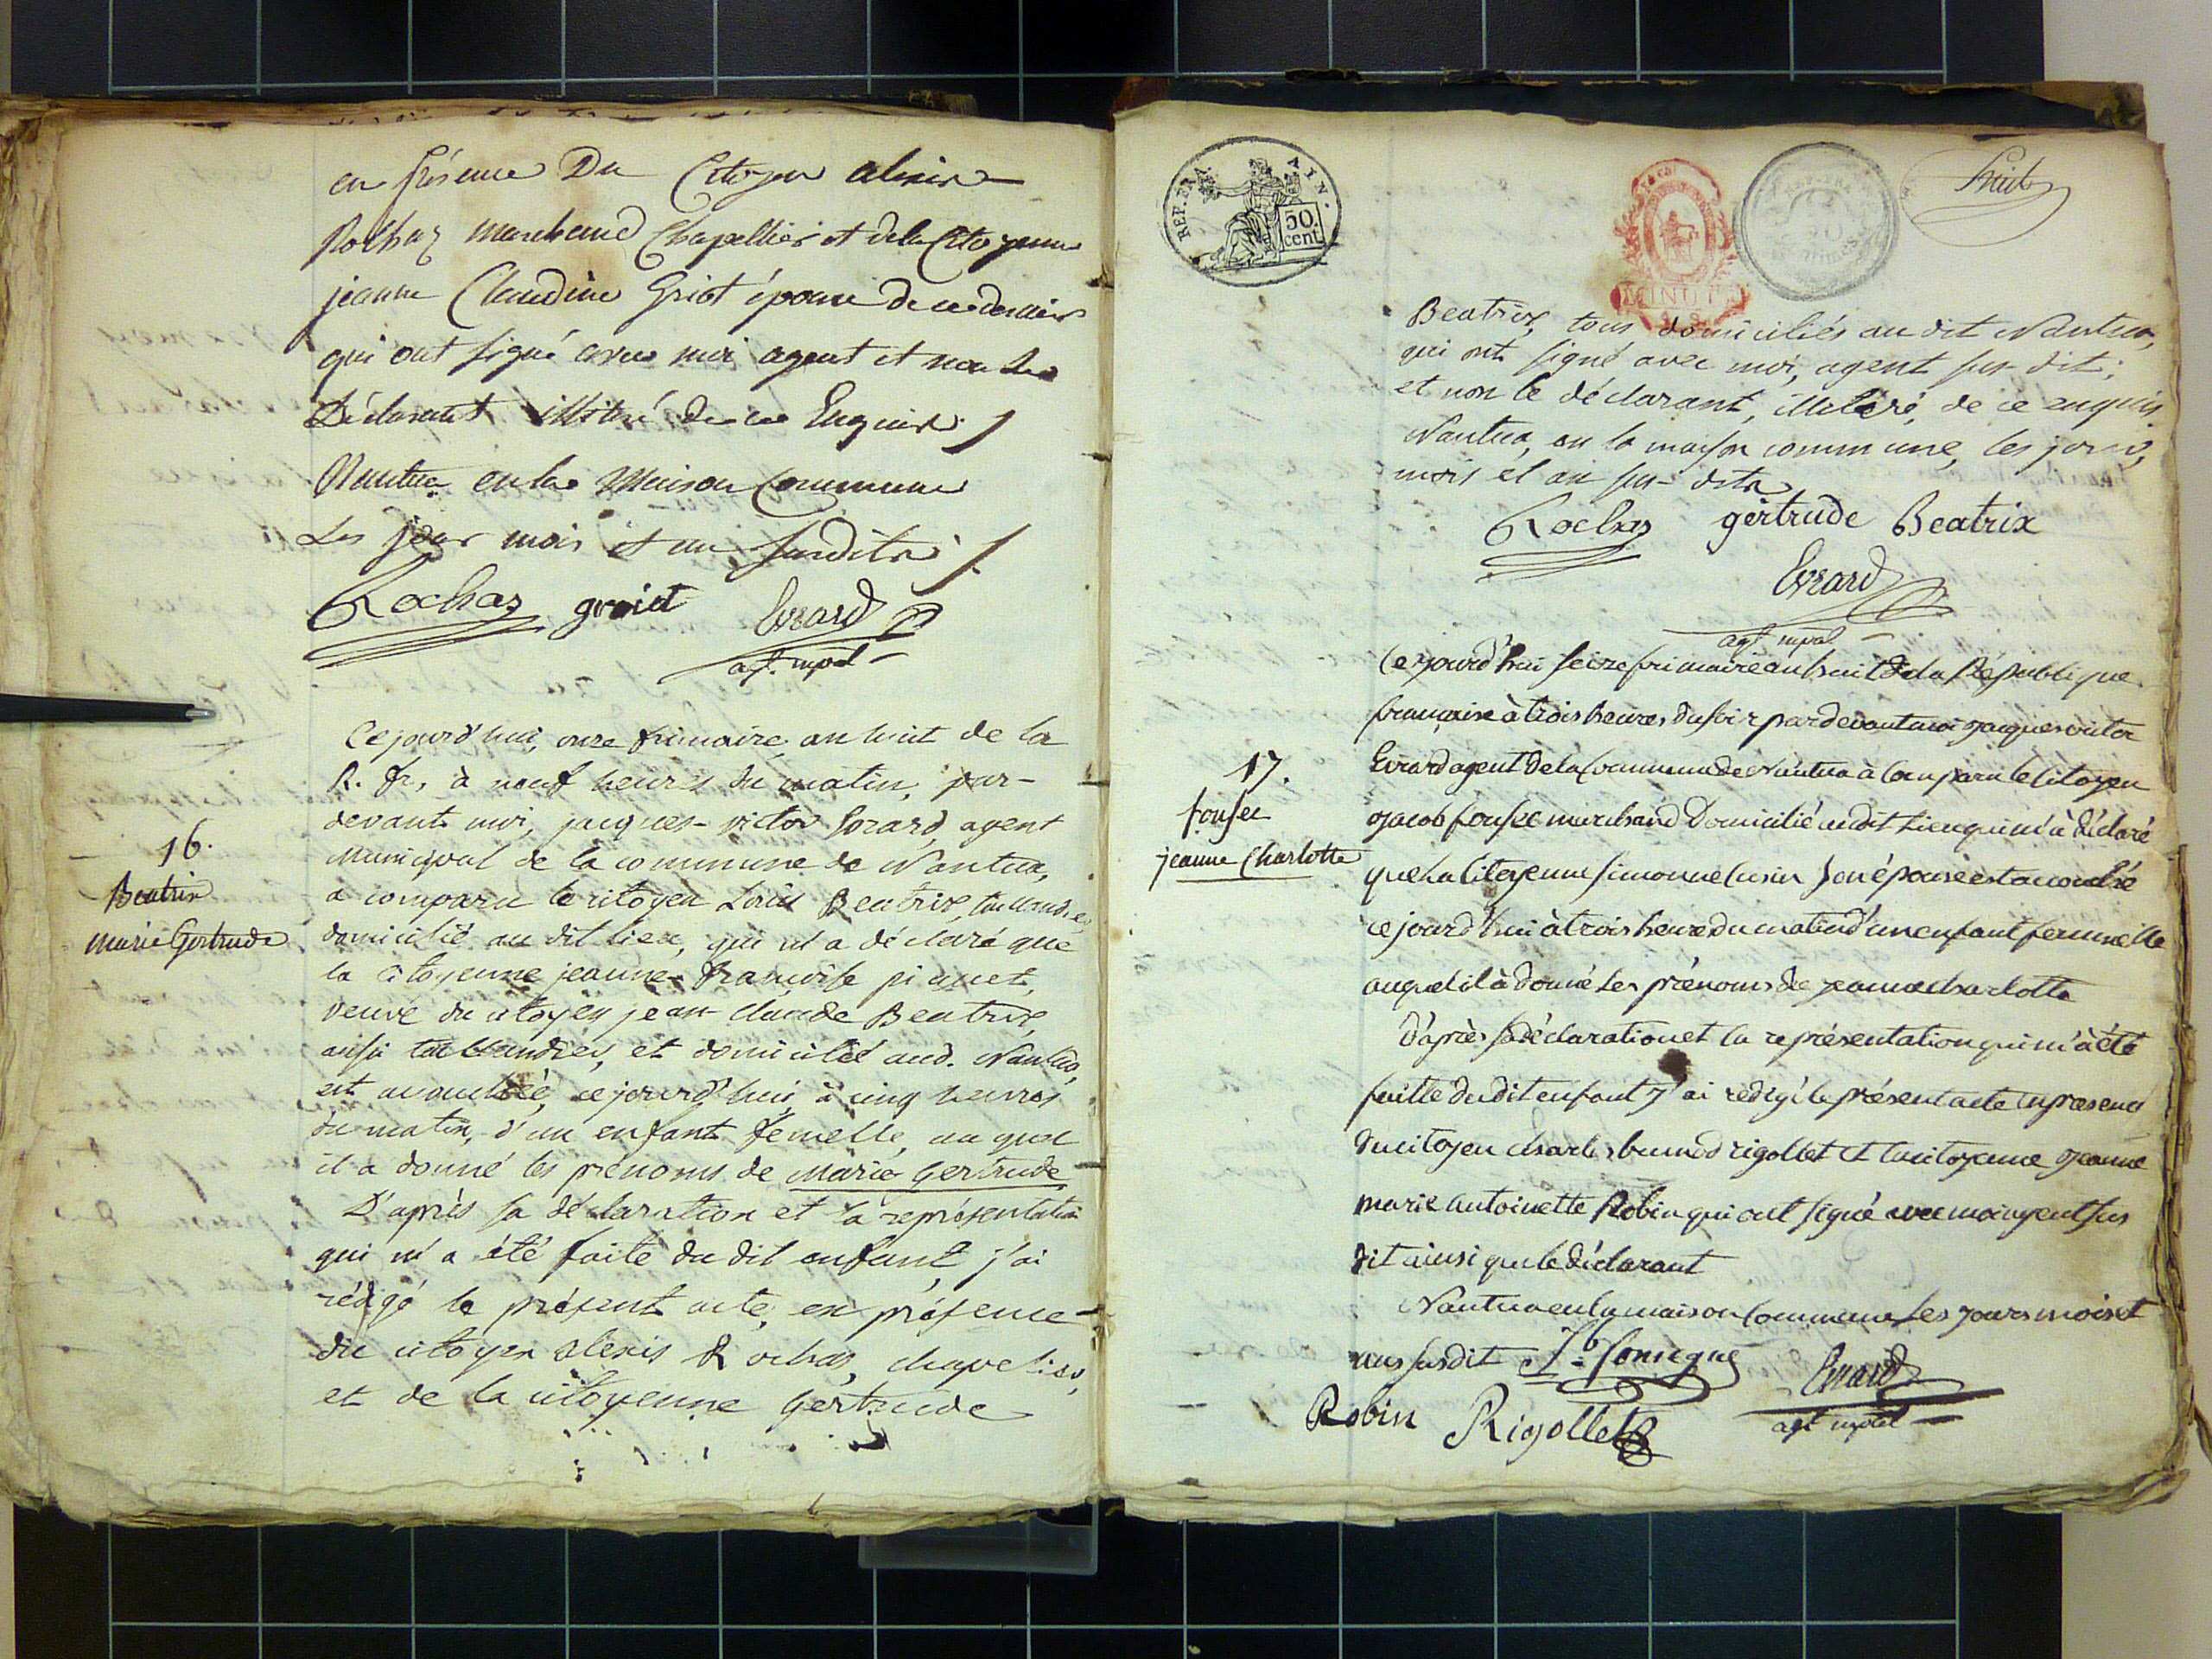 en présence Du Citoyen alexis
Rochaz marchand Chapellier et dela Citoyenne
jeanne Claudine Griot épouse de ce dernier
qui ont signé avec moi agent et non le
Déclarant illitéré de ce Enquis
Nantua en la Maison Commune
Les jour mois et an susdits
Rochaz groiet Evrard
agt. mpal
16.
Beatrix
marie Gertrude
Cejourd'hui, onze frimaire, an huit de la
R. fr, à neuf heures du matin, par-
devant moi, jacques-victor Evrard, agent
municipal de la commune de Nantua,
a comparu le citoyen Louis Beatrix, taillandier
domicilié au dit lieu, qui m'a déclaré que
la citoyenne jeanne-françoise piquet,
veuve du citoyen jean-claude Beatrix,
aussi taillandier, et domicilié aud. Nantua,
est accouchée, cejourd'hui, à cinq heures
du matin, d'un enfant femelle, au quel
il a donné les prénoms de marie Gertrude
D'après sa déclaration et la représentation
qui m'a été faite du dit enfant, j'ai
rédigé le présent acte, en présence
du citoyen alexis Rochas, chapelier,
et de la citoyenne Gertrude
REP. FRA. AIN.
50. cent
MINUTE
Beatrix, tous domiciliés au dit Nantua,
qui ont signé avec moi, agent sus-dit;
et non le déclarant, illiteré, de ce enquis
Nantua, en la maison commune, les jour,
mois et an sus-dits
Rochaz gertrude Beatrix
Evrard
agt mpal
17.
fonsec
jeanne Charlotte
Cejourd'hui seize frimaire an huit de la République
française à trois heures du soir pardevant moi jacques victor
Evrard agent de la Commune de Nantua à Comparu le Citoyen
jacob fonsec marchand Domicilié audit Lieu qui m'à déclaré
que La Citoyenne simonne Cusin son épouse est accouchée
cejourd'hui à trois heure du matin d'un enfant femmelle
auquel il à donné Les prénoms de jeanne charlotte
D'après sa déclaration et la représentation qui m'à été
faitte du dit enfant J'ai redigé le présent acte en présence
du citoyen charles rigollet et la citoyenne jeanne
marie antoinette Robin qui ont signé avec moi agent sus
dit ainsi que le déclarant
Nantua en la maison Commune Les jours mois et
ans susdit Evrard
Robin Rigollet agt mpal